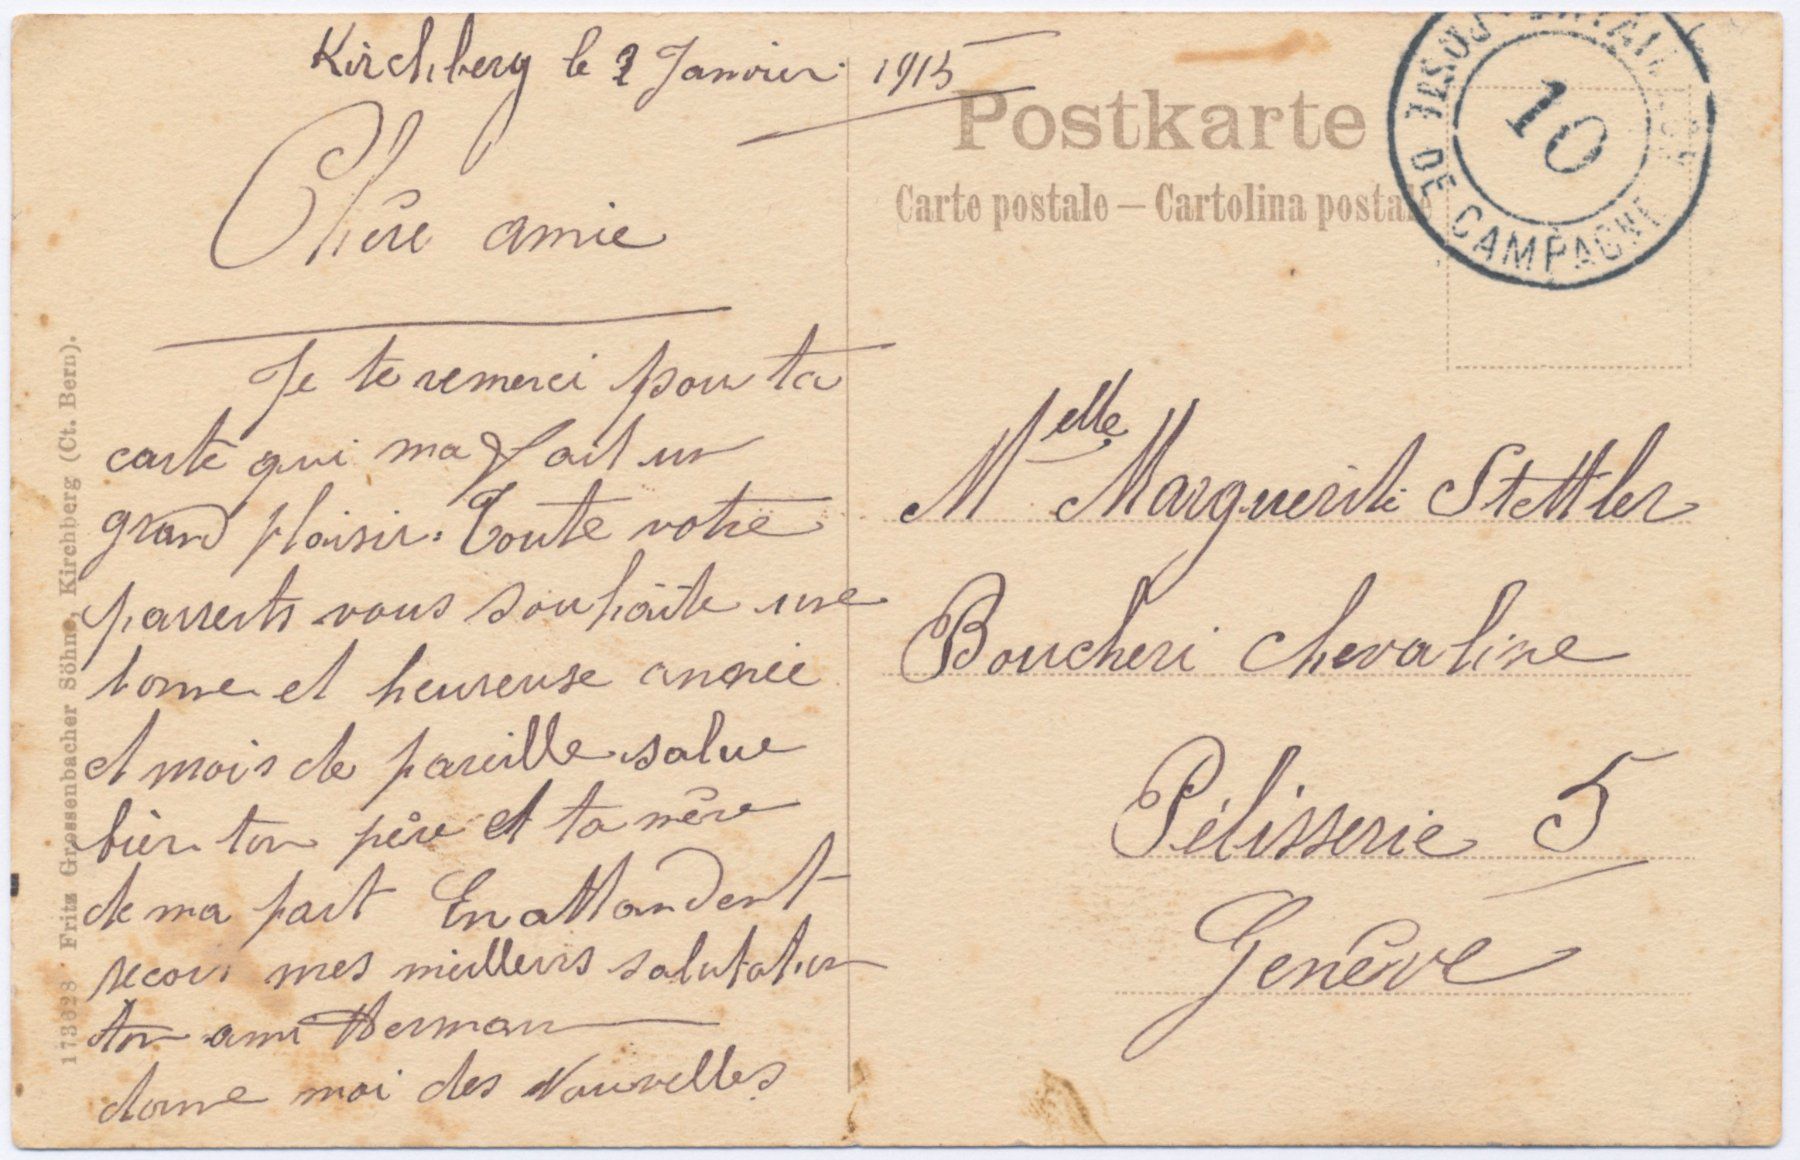 Kirchberg le 2 Janvier 1915
Chère amie
Je te remerci pour ta
carte qui ma fait un
grand plaisir. Toute votre
parrents vous souhaite une
bonne et heureuse année
et mois de pareille salue
bien ton père et ta mère
de ma part En attandent
recois mes meilleurs salutation
ton ami Herman
donne moi des Nouvelles
173628 Fritz Grossenbacher Söhne, Kirchberg (Ct. Bern).
Postkarte
Carte postale — Cartolina postale
10
DE CAMPAGNE
Melle Marguerite Stettler
Boucheri chevaline
Pélisserie 5
Genève